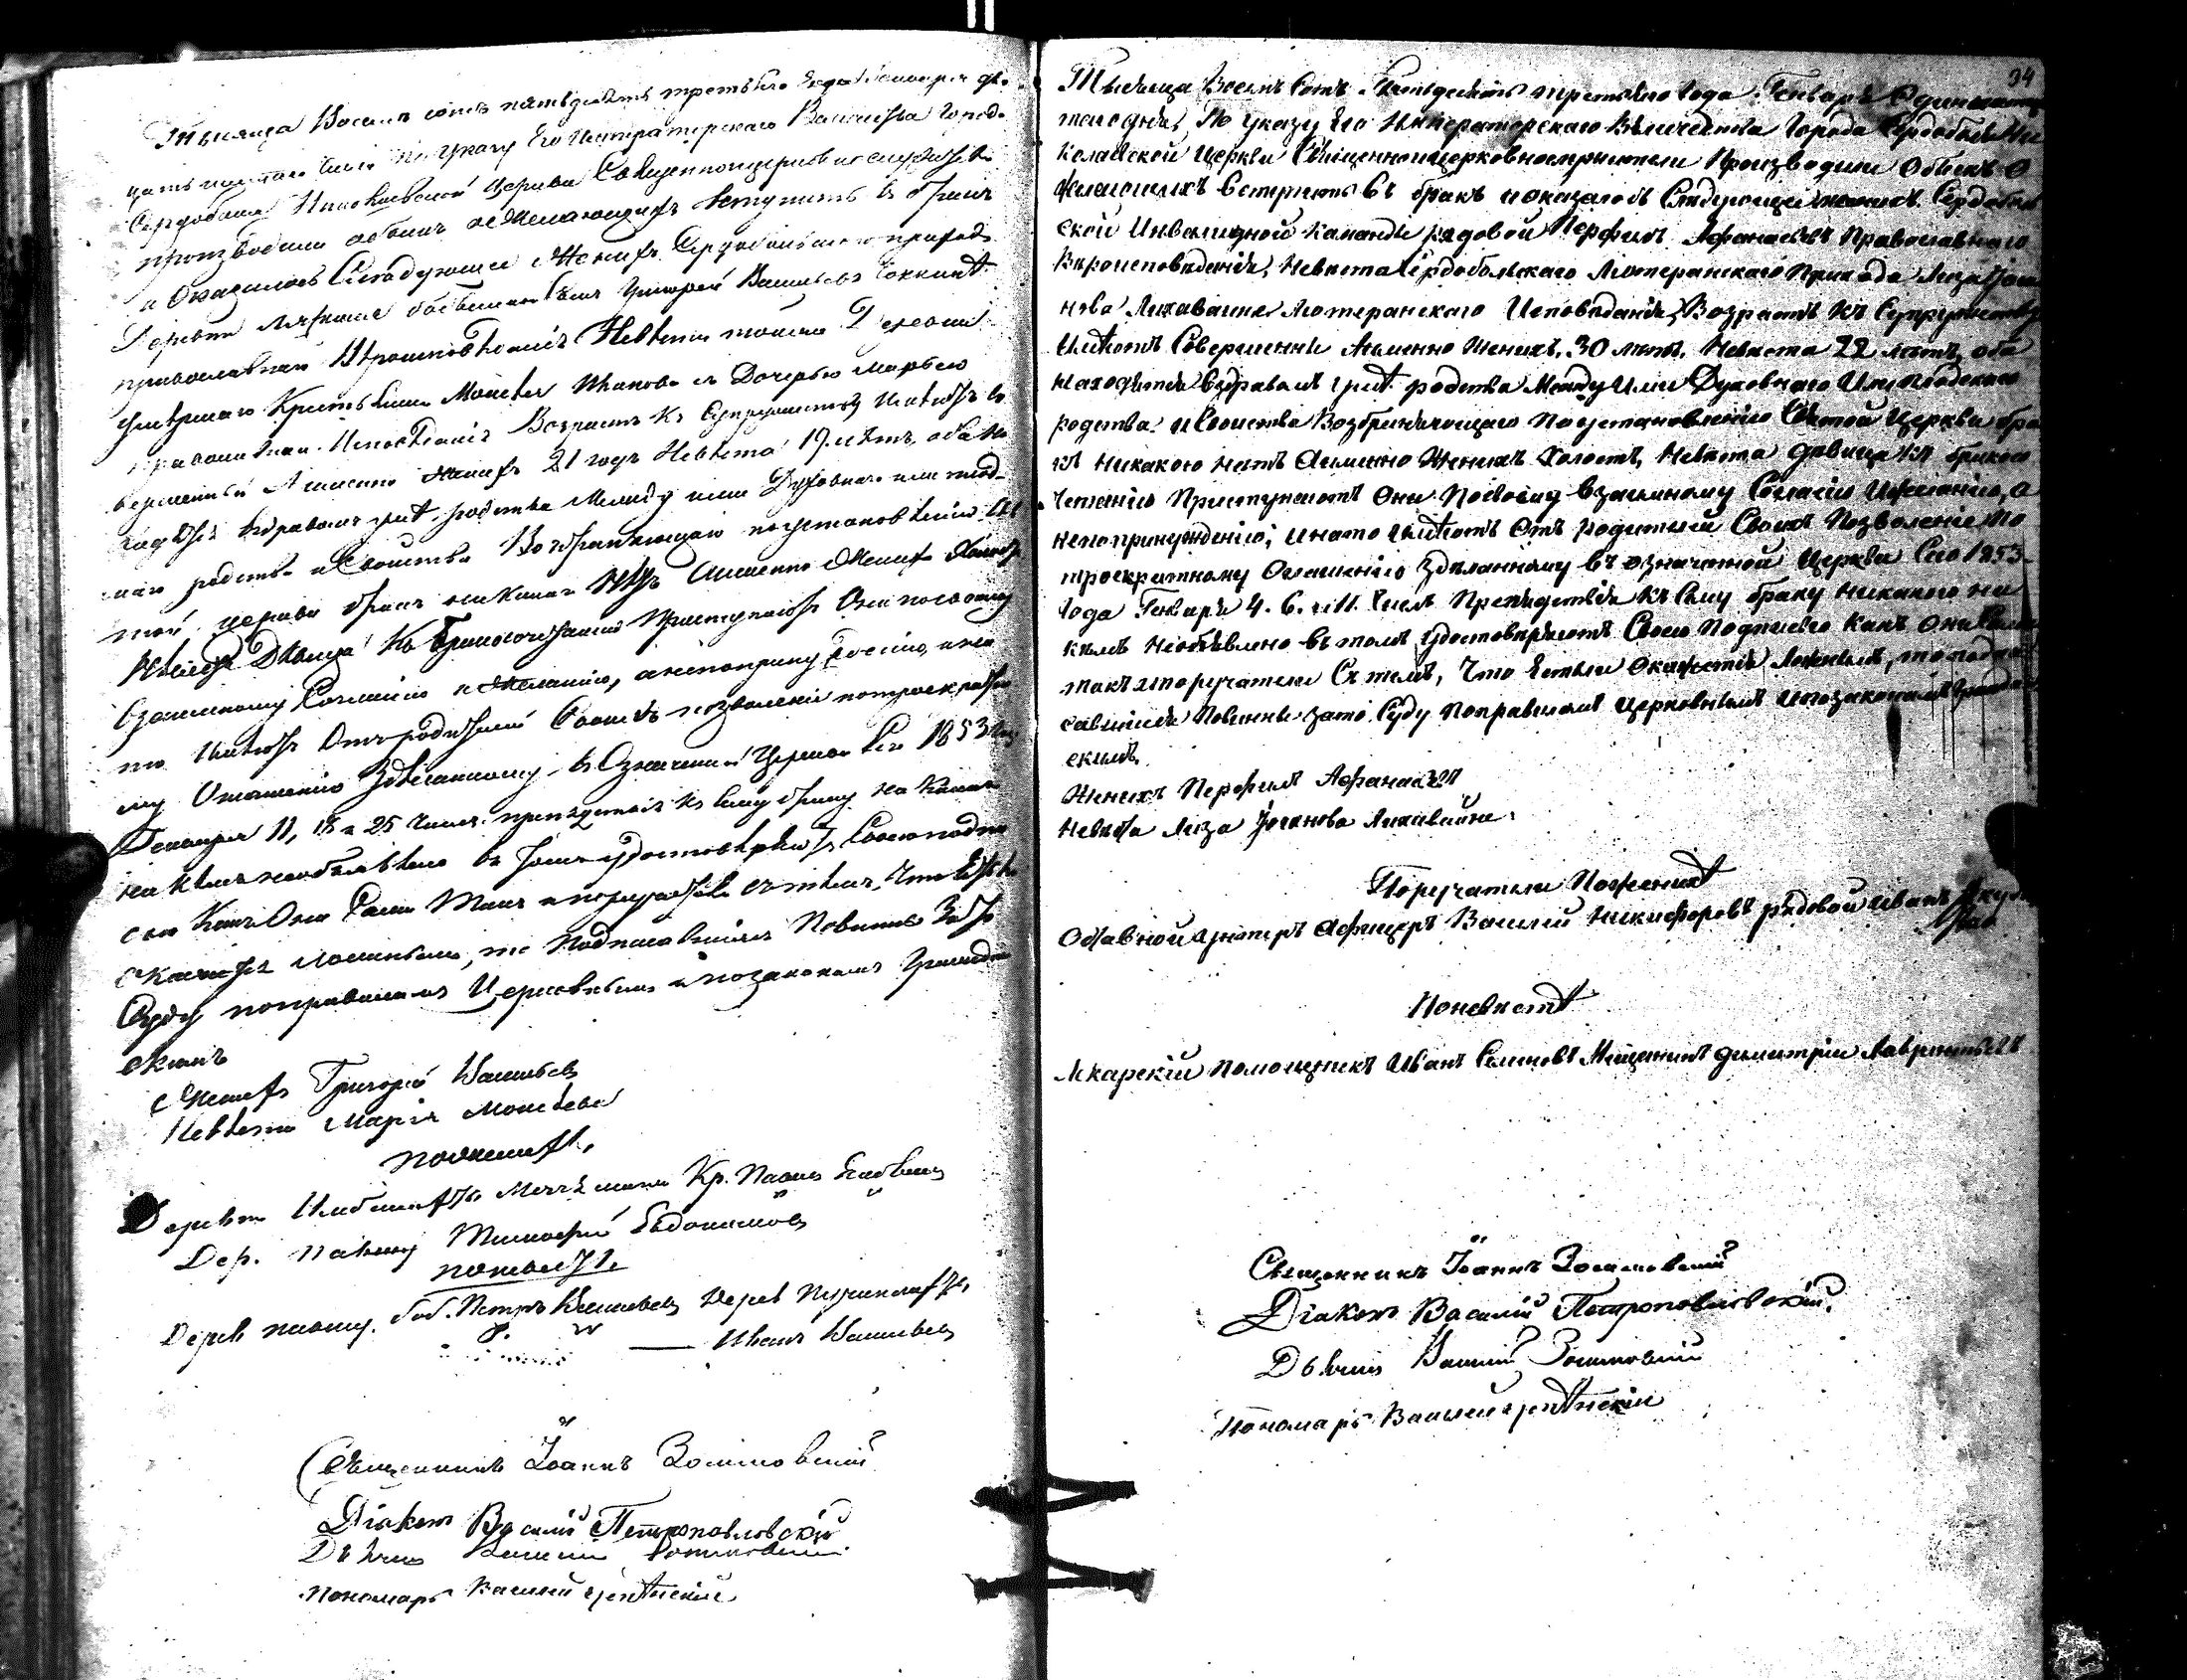 Тысяща Восемь сотъ пятьдесятъ третьяго года Генваря два-
цать пятаго Числа По Указу Его Императорскаго Величества Города
Сердоболя Николаевской Церкви Священноцерковнослужители
производили обыскъ о желающихъ вступить въ бракъ
и Оказалось Следующее Женихъ Сердобольскаго прихода
Деревни бобыльскій сынъ Григорей Васильевъ
православнаго Вѣроисповѣданія Невѣста тойже Деревни
умершаго Крестьянина Моисея Иванова Дочерью Марьею
православнаго Исповѣданія Возрастъ Къ Супружеству Имѣютъ со
вершенный Аименно Женихъ 21 годъ Невѣста 19 лѣтъ оба на
ходятся въздравомъ умѣ родства Между ими Духовнаго или плод-
скаго родства и Свойства Возбраняющаго поустановленію Свя
той церкви бракъ никакого нѣтъ Аименно Женихъ Холостъ
Невѣста Дѣвица Къ Бракосочетанію Приступаютъ Они посвоему
Взаимному Согласію и Желанію, анепопринужденію, и на
то Имѣютъ Отъ родителей Своихъ позволеніе потроекратно
му Оглашенію Здѣланному въ Означенной Церкви Сего 1853 года
Генваря 11, 18 и 25 Числъ препядствія Къ Сему браку ни какого
ни кѣмъ необъявлено въ томъ удостовѣряютъ Своею подпи
сью Какъ Они Сами Такъ и поручатели съ тѣмъ, Что Естьли
Окажется Ложнымъ, то Подписавшіися Повинны Зато
Суду поправиламъ Церковнымъ и позаконамъ Граждан
скимъ
Женихъ Григорей Васильевъ
Невѣста Марія Моисеева
пожениху,
Деревни Кр. Павелъ
Дер. Тимофей Евдокимовъ
поневѣстѣ
Дерев боб. Петръ Васильевъ Дерев
Иванъ Васильевъ
Священникъ Іоаннъ Зосимовскій
Діаконъ Василій Петропавловскій
Дьячекъ Василій Зотиковскій
Пономарь Василей
34
Тысяща Восемь Сотъ Пятьдесятъ третьяго Года Генваря Одинадца
таго дня, По Указу Его Императорскаго Величества Города Сердоболя Ни
колаевской Церкви Священноцерковнослужители Производили Обыскъ О
желающихъ Вступить въ бракъ и оказалось Следующее женихъ Сердоболь
ской Инвалидной Команды рядовой Перфилъ Афанасьевъ Православнаго
Вѣроисповѣданія, Невѣста Сердобольскаго Лютеранскаго Прихода Лиза Юга
нова Лихавайне Лютеранскаго Исповѣданія, Возрастъ Къ Супружеству
Имѣютъ Совершенны Аименно Женихъ. 30 лѣтъ. Невѣста 22 лѣтъ, оба
находятся Въздравомъ умѣ родства Между Ими Духовнаго Или Плодскаго
родства и Свойства Возбраняющаго Поустановленію Святой Церкви бра
къ Никакого нѣтъ Аименно Женихъ Холостъ, Невѣста дѣвица Къ бракосо
четанію Приступаютъ Они Посвоему Взаимному Согласію Ижеланію, а
непопринужденію, и нато Имѣютъ Отъ родителей Своихъ Позволеніе По
троекратному Оглашенію Здѣланному въ означенной Церкви Сего 1853
Года Генваря 4. 6. и 11. Числъ Препядствія Къ Сему браку Никакого ни
кѣмъ Необъявлено въ томъ удостовѣряютъ Своею Подписью Какъ Они Сами
такъ ипоручатели Съ тѣмъ, Что Естьли Окажется Ложнымъ, то подпи
савшіися Повинны зато Суду Поправиламъ Церковнымъ Ипозаконамъ Граждан
скимъ,
Женихъ Перфилъ Афанасьевъ
Невѣста Лиза Юганова Лихавайне
Поручатели Поженихѣ
Отставной Унтеръ Афицеръ Василей Никифоровъ рядовой Иванъ
Поневѣстѣ
Лекарскій Помощникъ Иванъ Семеновъ Мещанинъ Димитріи Лаврентьевъ
Священникъ Іоаннъ Зосимовскій
Діаконъ Василій Петропавловскій.
Дьячекъ Василій Зотиковскій
Пономарь Василей